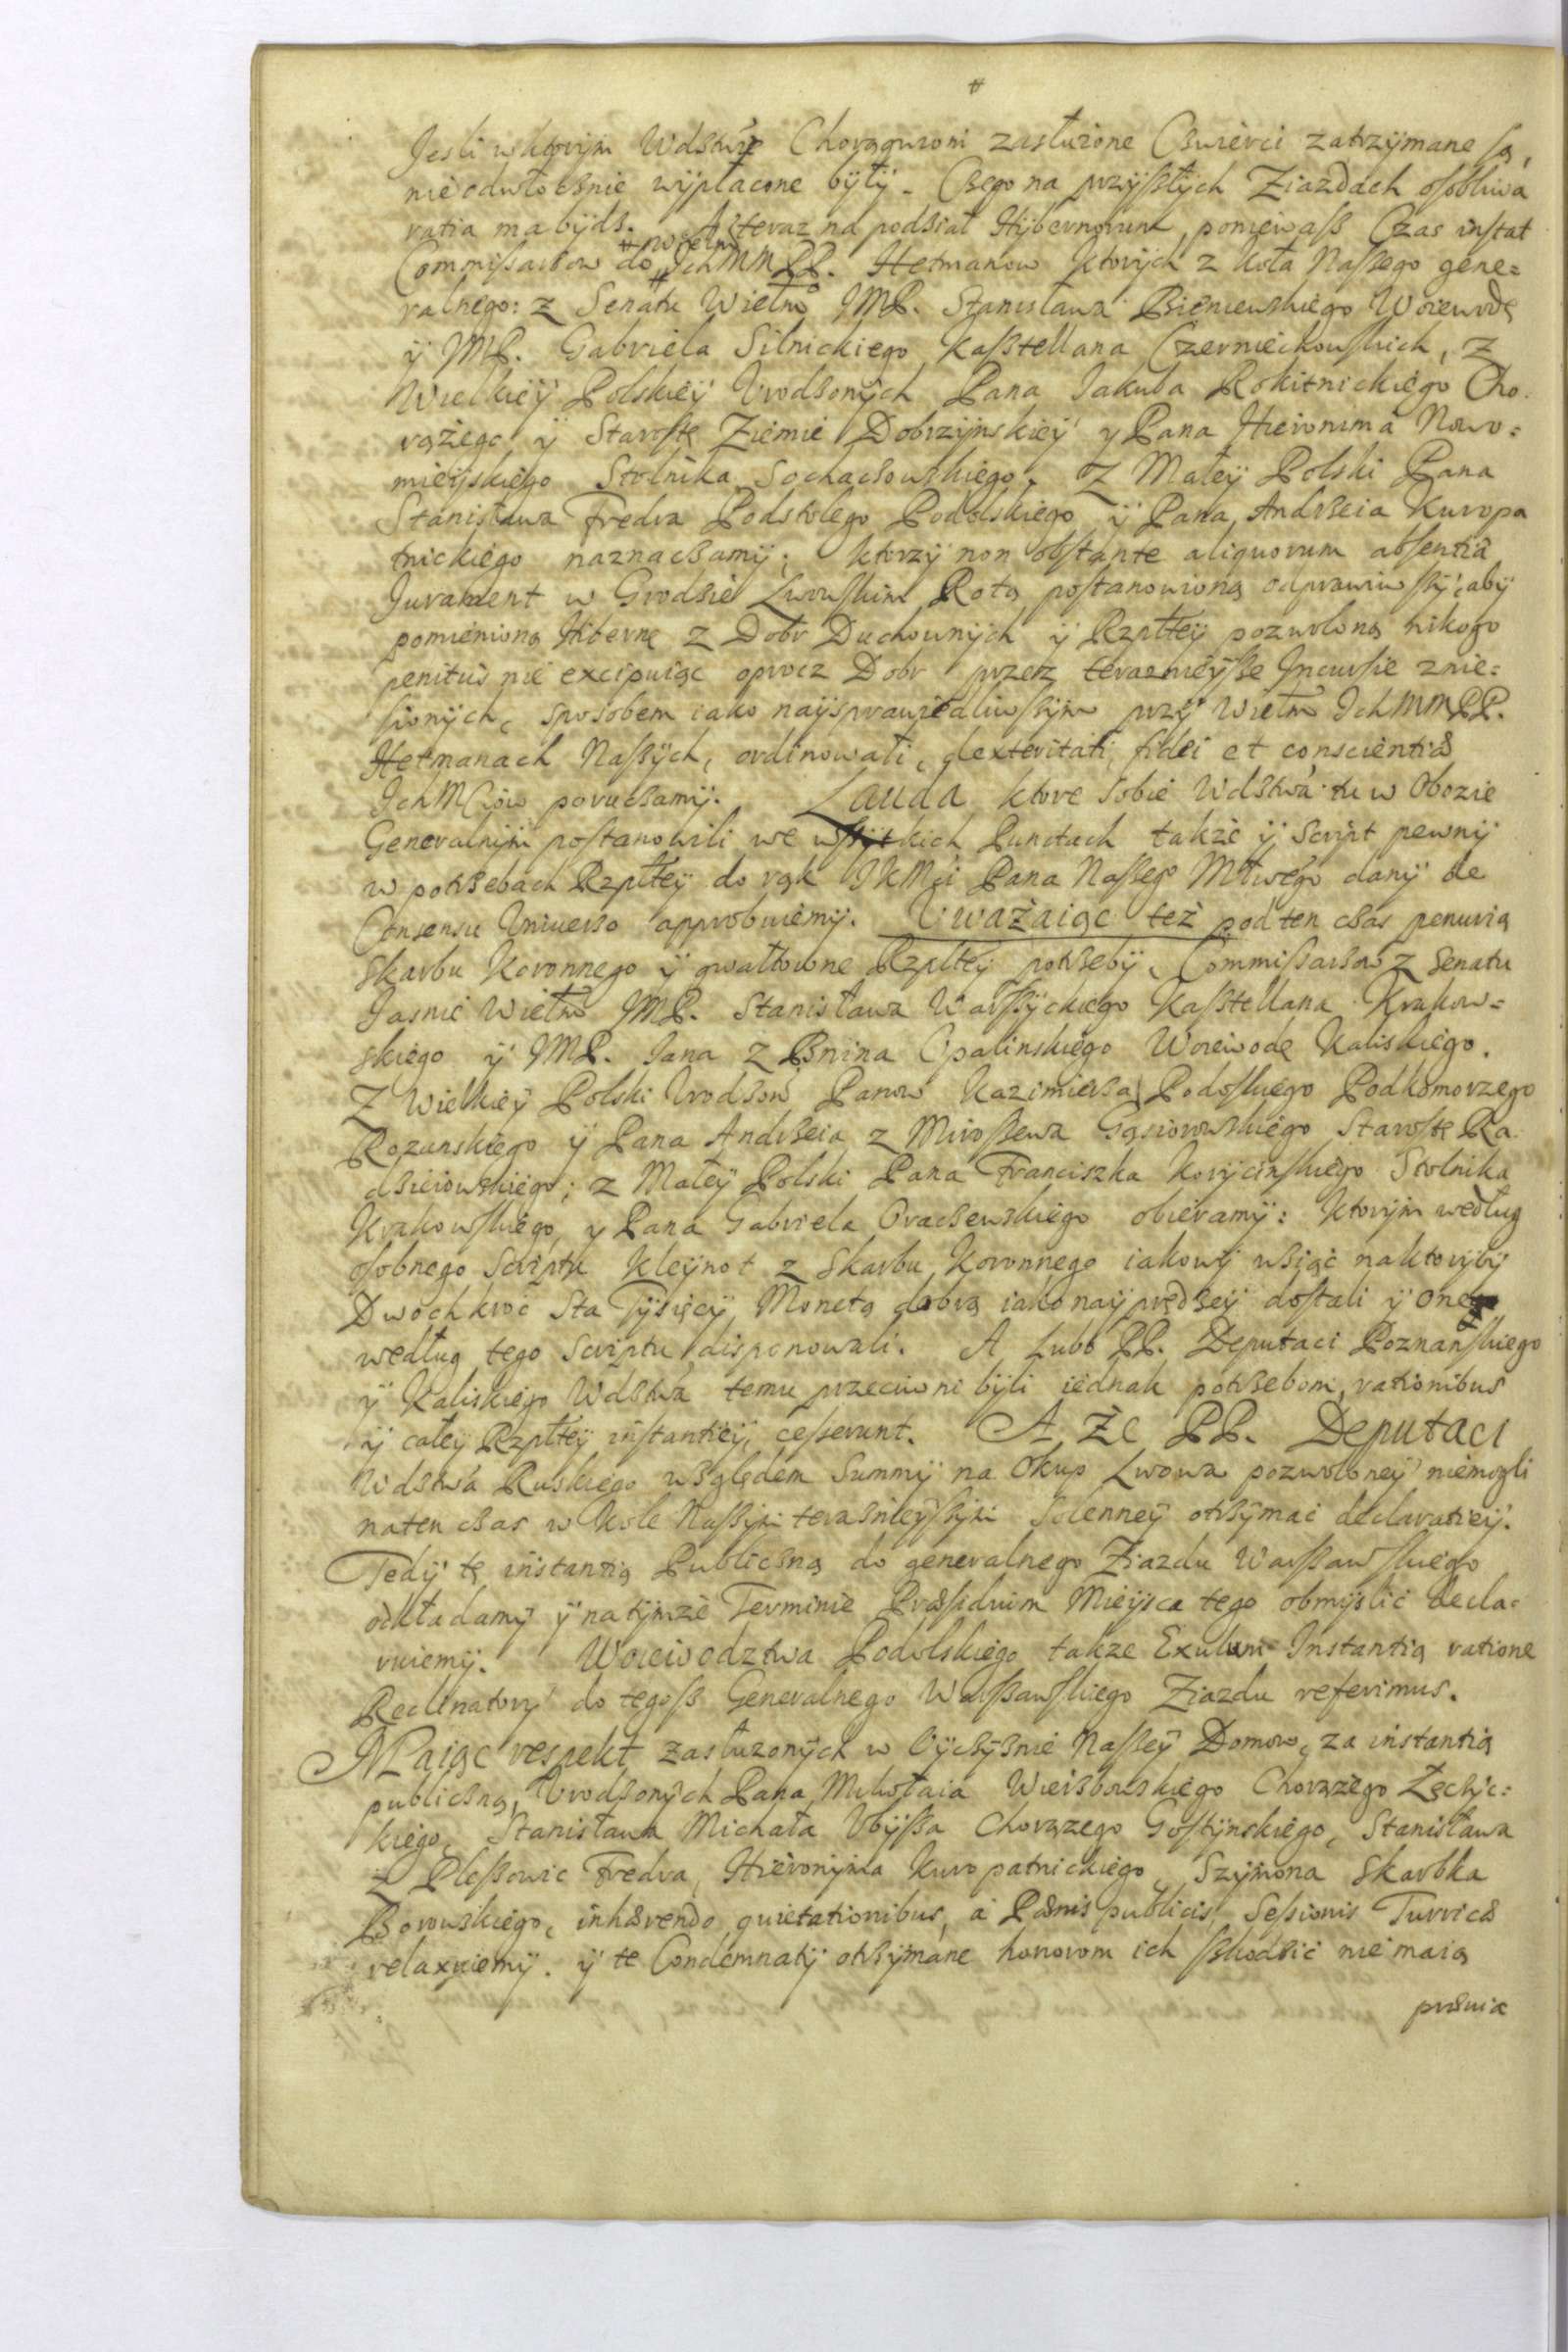 Jesli w ktorym Wdztwie Chorągwiom zasłuzone Cwierci zatrzymane są,
nieodwłocznie wypłacone były. Czego na przyszłych Ziazdach osobliwa
ratia ma bydz. A teraz na podział Hybernorum, poniewasz Czas instat
Commissarzow do Wielm IchMM PP. Hetmanow ktorych z koła Naszego gene=
ralnego: z Senatu Wielmo JMP. Stanisława Bieniewskiego Woiewodę
y JMP. Gabriela Silnickiego Kasztellana Czerniechowskich, z
Wielkiey Polskiey Vrodzonych Pana Jakuba Rokitnickiego Cho.
rążego y Starostę Ziemie Dobrzynskiey y Pana Hieronima Nowo=
mieyskiego Stolnika Sochaczowskiego. Z Małey Polski Pana
Stanisława Fredra Podstolego Podolskiego y Pana Andrzeia Kuropa
tnickiego naznaczamy; ktorzy non obstante aliquorum absentia
Jurament w Grodzie Lwowskim Rotą postanowioną odprawiwszy, aby
pomienioną Hibernę z Dobr Duchownych y Rzpltey pozwoloną nikogo
penitus nie excipuiąc oprocz Dobr przez teraznieysze Incursie znie=
sionych, sposobem iako naysprawiedliwszym przy Wielm IchMM PP.
Hetmanach Naszych, ordinowali, dexteritati, fidei et conscientiæ
IchMciow poruczamy. Lauda ktore sobie Wdztwa tu w Obozie
Generalnym postanowili we wszytkich Punctach takze y Script pewny
w potrzebach Rzpltey do rąk JKMci Pana Naszego Młwego dany de
Consensu Universo approbuiemy. Vważaiąc też pod ten czas penurią
Skarbu Koronnego y gwałtowne Rzpltey potrzeby, Commissarzow z Senatu
Jasnie Wielmo JMP. Stanisława Warszyckiego Kasztellana Krakow=
skiego y JMP. Jana z Bnina Opalinskiego Woiewodę Kaliskiego.
Z Wielkiey Polski Vrodzon Panow Kazimierza Podoskiego Podkomorzego
Rozanskiego y Pana Andrzeia z Miroszewa Gąsiorowskiego Starostę Ra
dzieiowskiego; z Małey Polski Pana Franciszka Korycinskiego Stolnika
Krakowskiego, y Pana Gabriela Oraczewskiego obieramy: ktorym według
osobnego Scriptu kleynot z Skarbu Koronnego iakowy wziąć na ktoryby
Dwochkroć Sta Tysięcy Monetą dobrą iako nayprędzey dostali y onego
według tego Scriptu disponowali. A lubo PP. Deputaci Poznanskiego
y Kaliskiego Wdztwa temu przeciwni byli iednak potrzebom, rationibus
y całey Rzpltey instantiey, cesserunt. A Że PP. Deputaci
Wdztwa Ruskiego względem Summy na Okup Lwowa pozwoloney niemogli
na ten czas w Kole Naszym teraznieyszym solenney otrzymać declaratiey.
Tedy tę instantią Publiczną do generalnego Ziazdu Warszawskiego
odkładamy y na tymże Terminie Præsidium Mieysca tego obmyslić decla=
ruiemy. Woiewodztwa Podolskiego takze Exulum Instantią ratione
Reclinatory do tegosz Generalnego Warszawskiego Ziazdu referimus.
Maiąc respekt zasłuzonych w Oyczyznie Naszey Domow, za instantią
publiczną, Vrodzonych Pana Mikołaia Wierzbowskiego Chorążego Łęczyc=
kiego, Stanisława Michała Vbysza Chorązego Gostynskiego, Stanisława
z Pleszowic Fredra, Hieronyma Kuropatnickiego, Szymona Skarbka
Borowskiego, inhærendo quietationibus, a Pænis publicis, Sessionis Turris
relaxuiemy. y te Condemnaty otrzymane honorom ich szkodzić nie maią